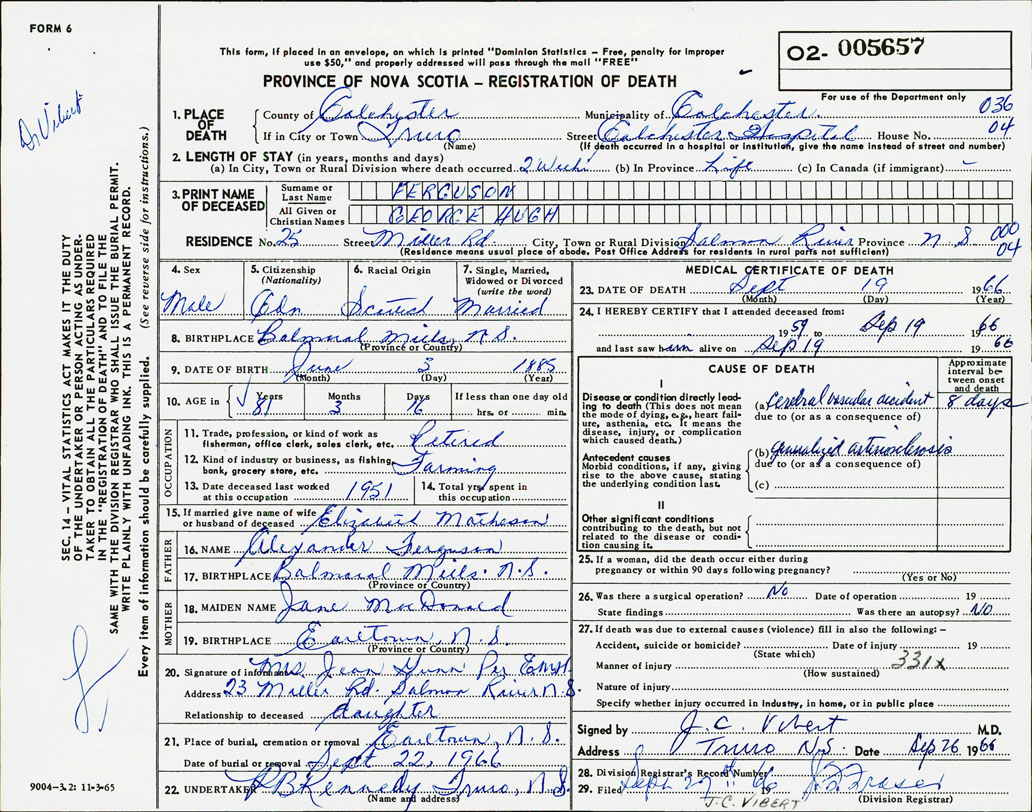 FORM 6
This form, if placed in an envelope, on which is printed "Dominion Statistics – Free, penalty for improper
use $50," and properly addressed will pass through the mail "FREE"
O2- 005657
PROVINCE OF NOVA SCOTIA – REGISTRATION OF DEATH
For use of the Department only
Dr Vibert
SEC. 14 – VITAL STATISTICS ACT MAKES IT THE DUTY
OF THE UNDERTAKER OR PERSON ACTING AS UNDER-
TAKER TO OBTAIN ALL THE PARTICULARS REQUIRED
IN THE "REGISTRATION OF DEATH" AND TO FILE THE
SAME WITH THE DIVISION REGISTRAR WHO SHALL ISSUE THE BURIAL PERMIT.
WRITE PLAINLY WITH UNFADING INK. THIS IS A PERMANENT RECORD.
Every item of information should be carefully supplied. (See reverse side for instructions.)
1. PLACE OF DEATH
County of Colchester Municipality of Colchester. 036
If in City or Town Truro Street Colchester Hospital House No. 04
(Name) (If death occurred in a hospital or institution, give the name instead of street and number)
2. LENGTH OF STAY (in years, months and days)
(a) In City, Town or Rural Division where death occurred 2 Weeks (b) In Province Life (c) In Canada (if immigrant) –
3. PRINT NAME OF DECEASED
Surname or Last Name FERGUSON
All Given or Christian Names GEORGE HUGH
RESIDENCE No. 25 Street Miller Rd. City, Town or Rural Division Salmon River Province N S 000
04
(Residence means usual place of abode. Post Office Address for residents in rural parts not sufficient)
4. Sex Male
5. Citizenship (Nationality) Cdn
6. Racial Origin Scotish
7. Single, Married, Widowed or Divorced (write the word) Married
8. BIRTHPLACE Balmoral Mills, N.S.
(Province or Country)
9. DATE OF BIRTH June 3 1885
(Month) (Day) (Year)
10. AGE in Years 81 Months 3 Days 16 If less than one day old hrs. or min.
OCCUPATION
11. Trade, profession, or kind of work as fisherman, office clerk, sales clerk, etc. Retired
12. Kind of industry or business, as fishing, bank, grocery store, etc. Farming
13. Date deceased last worked at this occupation 1951 14. Total yrs. spent in this occupation
15. If married give name of wife or husband of deceased Elizabeth Matheson
FATHER
16. NAME Alexander Ferguson
17. BIRTHPLACE Balmoral Mills. N.S.
(Province or Country)
MOTHER
18. MAIDEN NAME Jane MacDonald
19. BIRTHPLACE Earltown, N.S.
(Province or Country)
20. Signature of informant Mrs. Jean Gunn Per
Address 23 Miller Rd. Salmon River N.S.
Relationship to deceased daughter
21. Place of burial, cremation or removal Earltown, N.S.
Date of burial or removal Sept 22, 1966
22. UNDERTAKER R B Kennedy Truro, N.S.
(Name and address)
9004-3.2: 11-3-65
MEDICAL CERTIFICATE OF DEATH
23. DATE OF DEATH Sept 19 1966
(Month) (Day) (Year)
24. I HEREBY CERTIFY that I attended deceased from:
1959 to Sep 19 1966
and last saw him alive on Sep 19 1966
CAUSE OF DEATH
Approximate interval between onset and death
I
Disease or condition directly leading to death (This does not mean the mode of dying, e.g., heart failure, asthenia, etc. It means the disease, injury, or complication which caused death.)
(a) cerebral vascular accident 8 days
due to (or as a consequence of)
Antecedent causes
Morbid conditions, if any, giving rise to the above cause, stating the underlying condition last.
(b) generalized arteriosclerosis
due to (or as a consequence of)
(c)
II
Other significant conditions
contributing to the death, but not related to the disease or condition causing it.
25. If a woman, did the death occur either during
pregnancy or within 90 days following pregnancy?
(Yes or No)
26. Was there a surgical operation? No Date of operation 19
State findings Was there an autopsy? NO
27. If death was due to external causes (violence) fill in also the following: –
Accident, suicide or homicide? Date of injury 19
(State which) 331X
Manner of injury
(How sustained)
Nature of injury
Specify whether injury occurred in Industry, in home, or in public place
Signed by J. C. Vibert M.D.
Address Truro N.S. Date Sep 26 1966
28. Division Registrar's Record Number
29. Filed Sept 27th 1966 J. D. Fraser
J.C. VIBERT (Division Registrar)